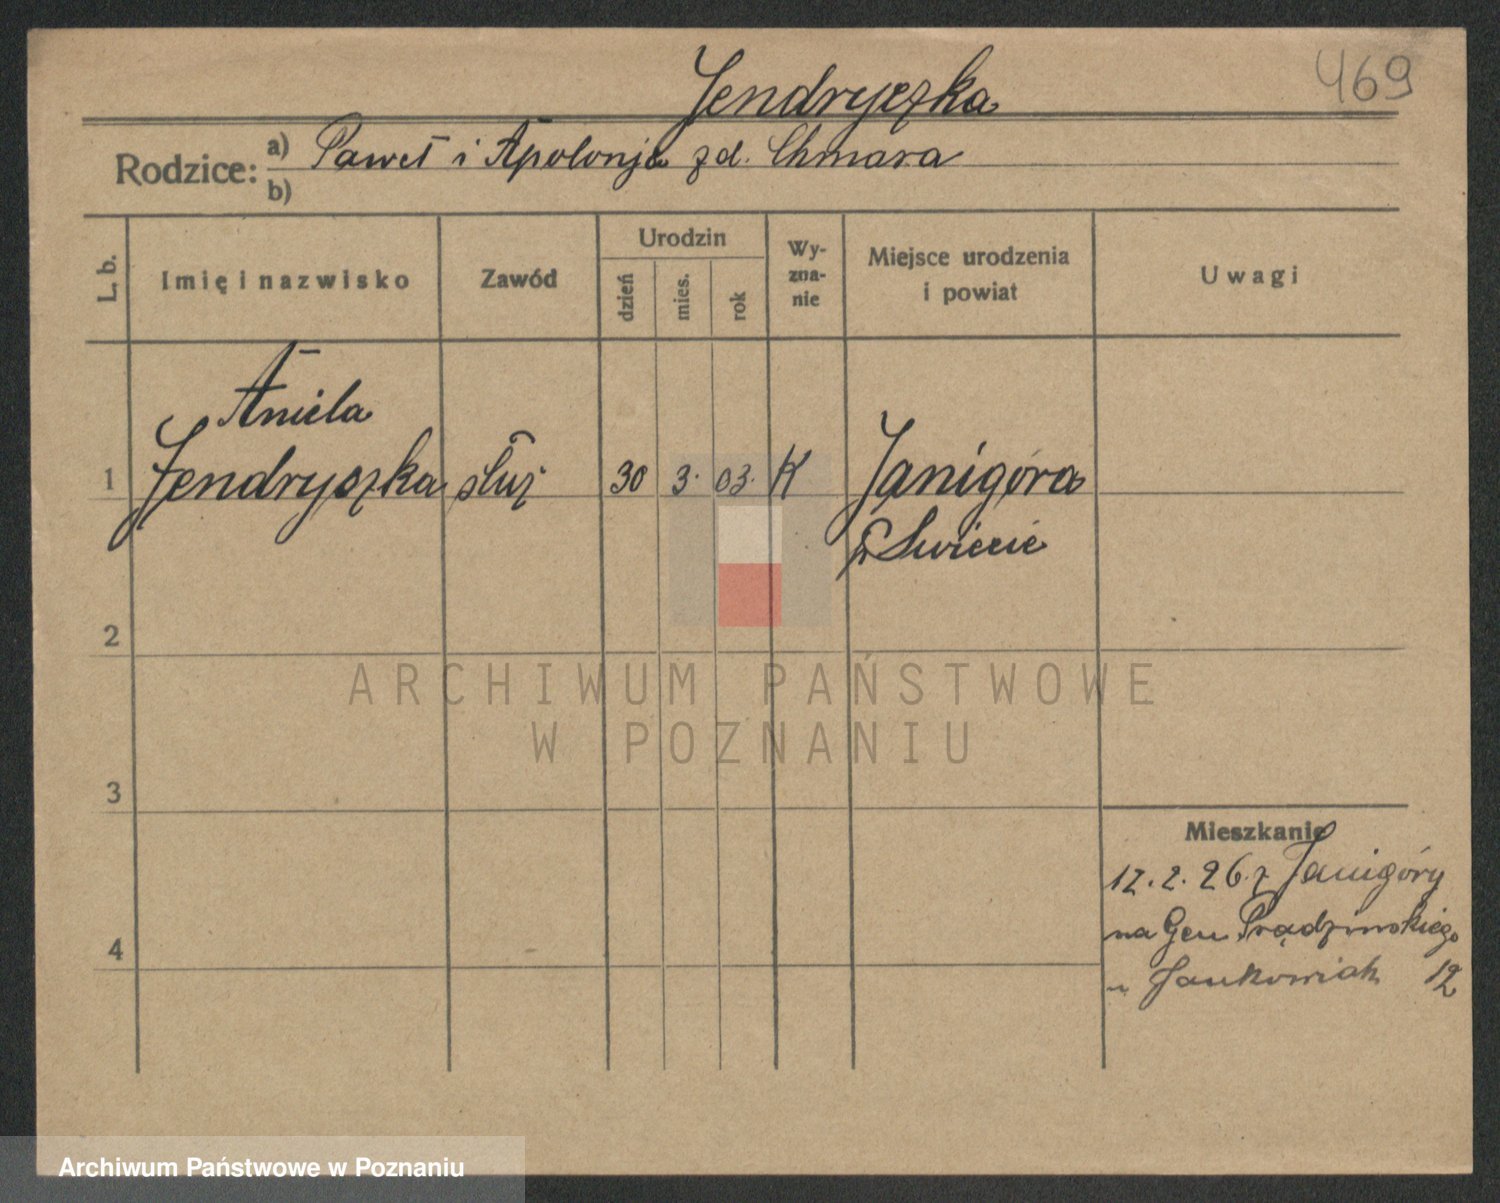 Jendryczka
469
Rodzice: a) Paweł i Apolonja zd. Chmara
b)
L. b.
Imię i nazwisko
Zawód
Urodzin
dzień
mies.
rok
Wy-
zna-
nie
Miejsce urodzenia
i powiat
Uwagi
Aniela
1 Jendryczka służ 30 3. 03. K Janigóra
p. Swiecie
2
ARCHIWUM PAŃSTWOWE
W POZNANIU
3
Mieszkanie
12. 2. 26. z Janigóry
na Gen Prądzinskiego
u Jankowiak 12
4
Archiwum Państwowe w Poznaniu